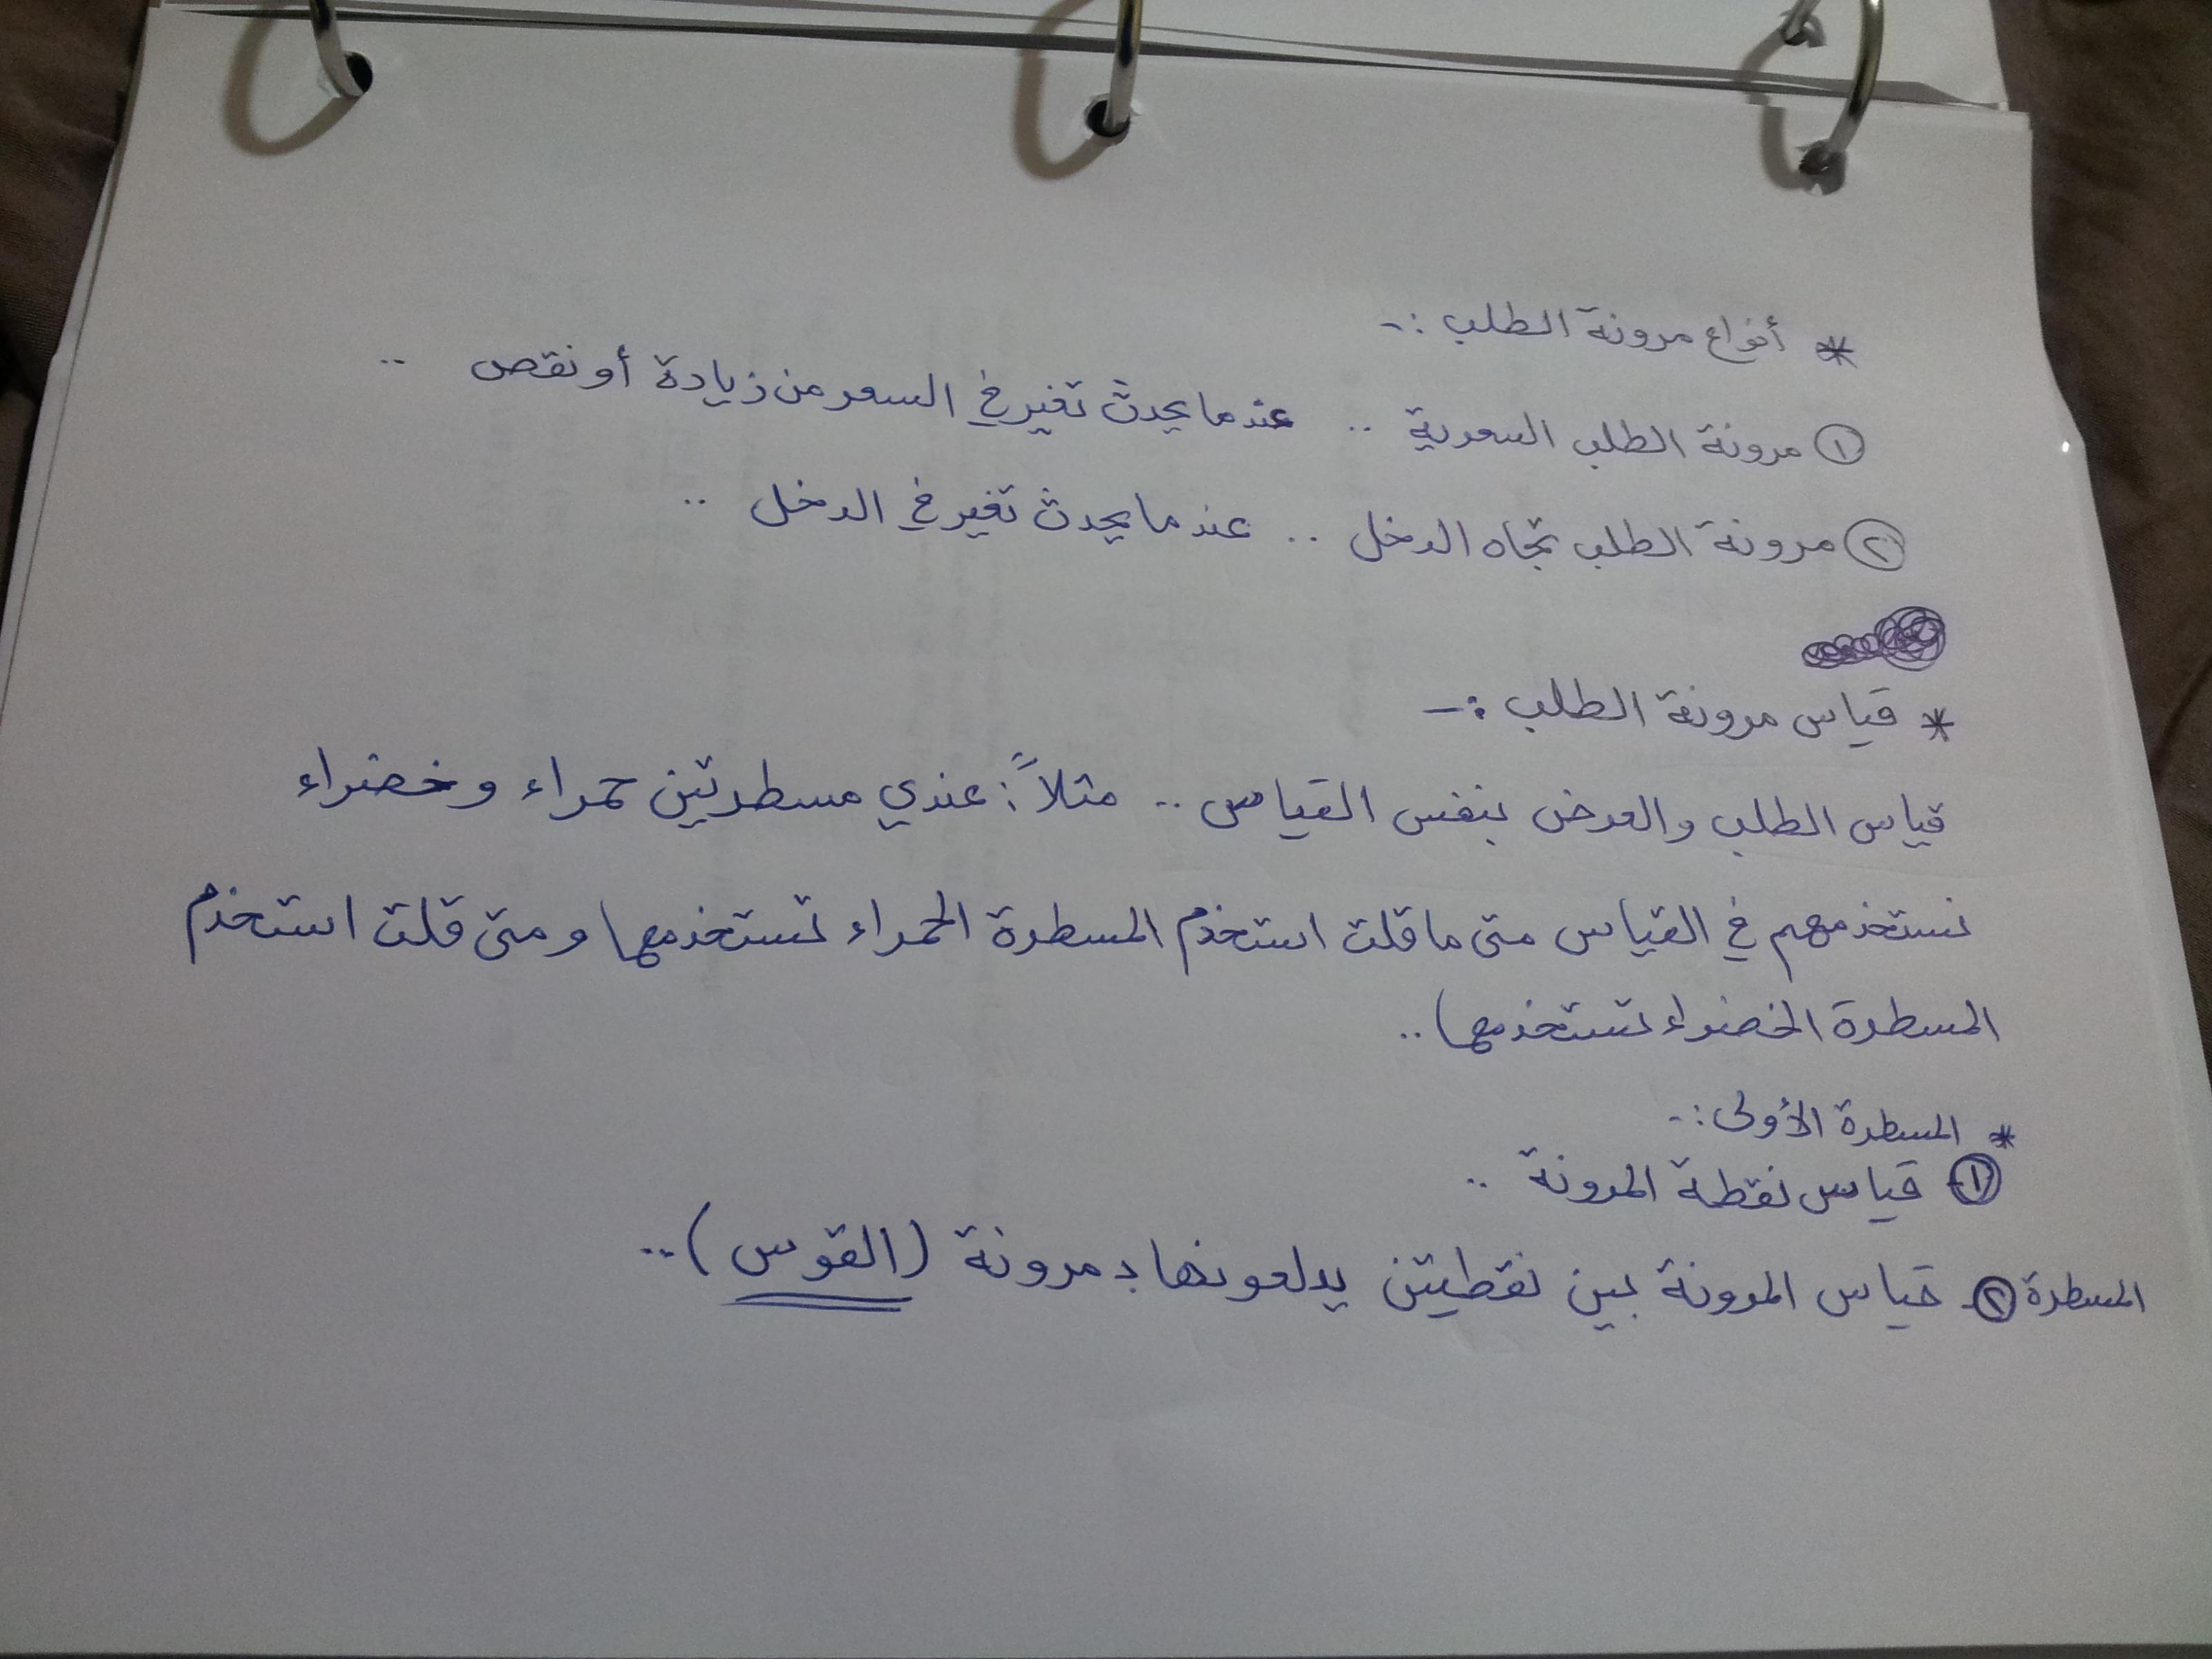 * أنواع مرونة الطلب :-
① مرونة الطلب السعرية .. عندما يحدث تغير في السعر من زيادة أو نقص ..
② مرونة الطلب تجاه الدخل .. عندما يحدث تغير في الدخل ..
* قياس مرونة الطلب :-
قياس الطلب والعرض بنفس القياس .. مثلاً : عندي مسطرتين حمراء وخضراء
نستخدمهم في القياس متى ما قلت استخدم المسطرة الحمراء تستخدمها ومتى قلت استخدم
المسطرة الخضراء تستخدمها ..
* المسطرة الأولى :-
① قياس نقطة المرونة ..
المسطرة ② قياس المرونة بين نقطتين يدلعونها بـ مرونة (القوس) ..